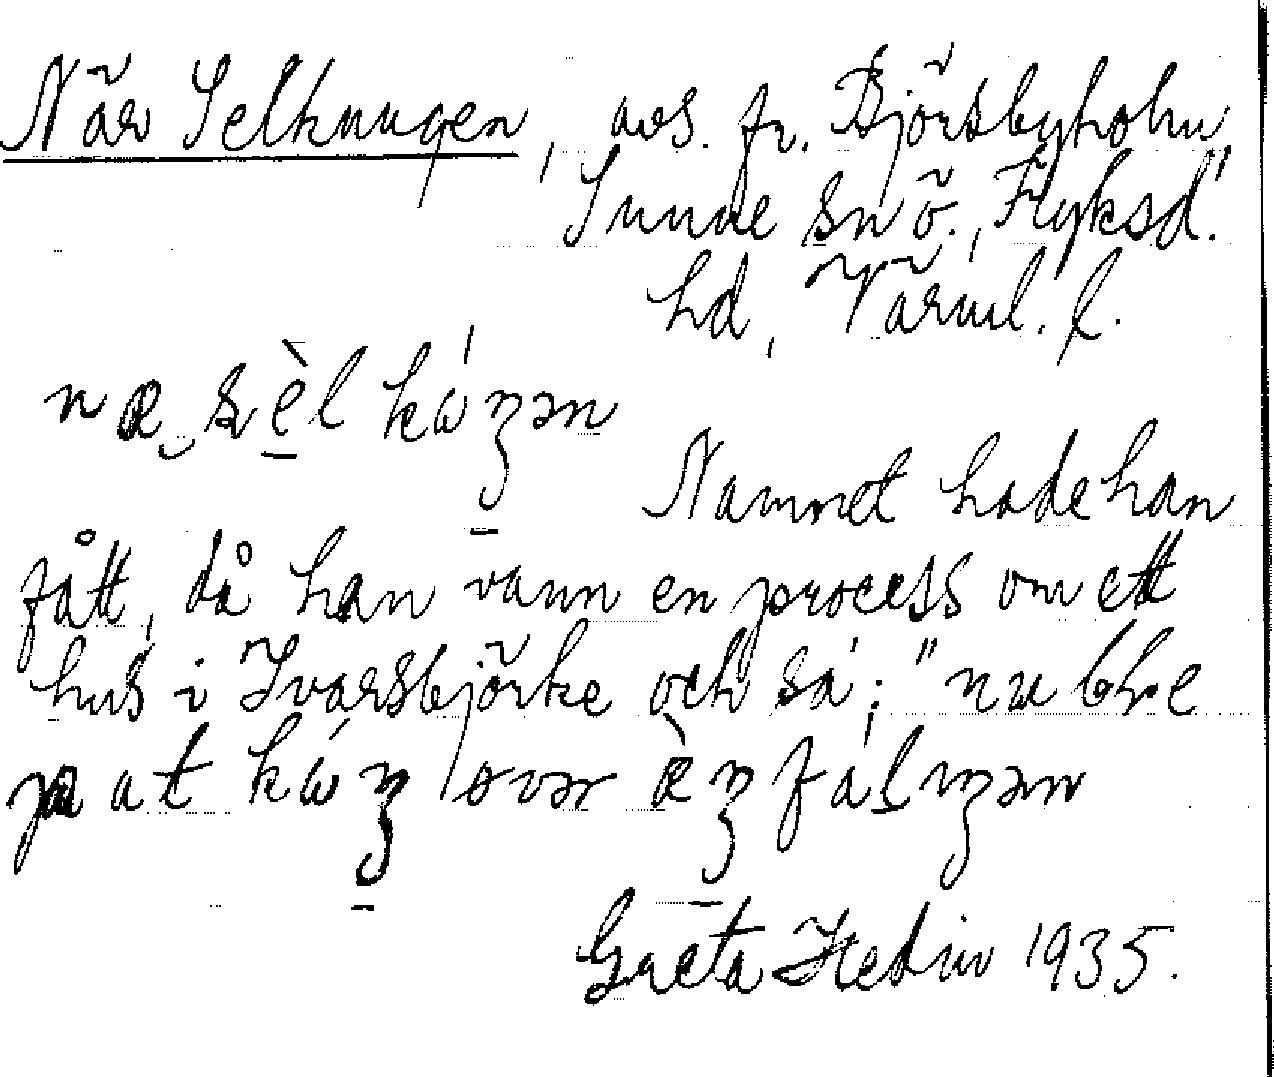 När Selkungen, avs. fr. Björsbyholm,
Sunne snö., Fryksd.
hd, Värml. l.
næ sèl káŋən
Namnet hade han
fått, då han vann en process om ett
hus i Ivarsbjörke och sa: "nu ble
ja at káŋ ovər
Greta Hedin 1935.